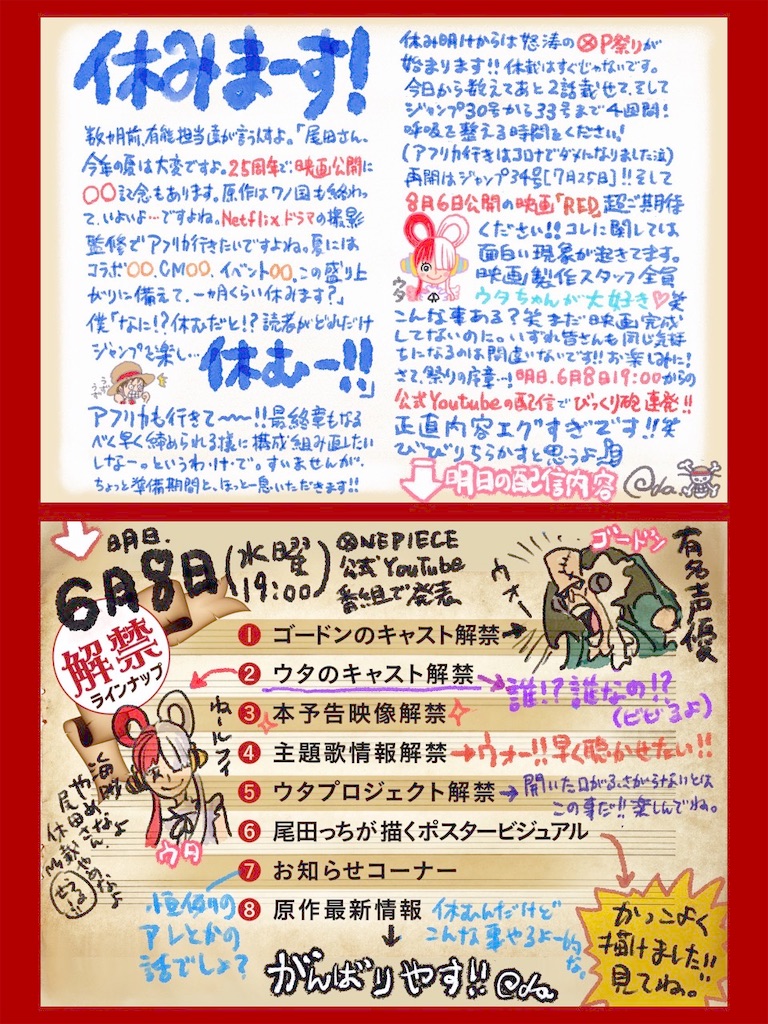 休みまーす!
数カ月前、有能担当達が言うんすよ。「尾田さん、
今年の夏は大変ですよ。25周年で、映画公開に
〇〇記念もあります。原作はワノ国も終わっ
て、いよいよ…ですよね。Netflixドラマの撮影
監修でアフリカ行きたいですよね。夏には
コラボ〇〇、CM〇〇、イベント〇〇。この盛り上
がりに備えて、一カ月くらい休みます?」
僕「なに!?休むだと!?読者がどれだけ
ジャンプを楽し…
休むー!!」
うず
うず
アフリカも行きて〜〜!!最終章もなる
べく早く締められる様に構成組み直したい
しなー。というわ・け・で。すいませんが、
ちょっと準備期間と、ほっと一息いただきます!!
休み明けからは怒涛のOP祭りが
始まります!!休むはすぐじゃないです。
今日から数えてあと2話載せて、そして
ジャンプ30号から33号まで4週間!
呼吸を整える時間をください!
(アフリカ行きはコロナでダメになりました泣)
再開はジャンプ34号[7月25日]!!そして
8月6日公開の映画「RED」超ご期待
ください!!コレに関しては
面白い現象が起きてます。
映画製作スタッフ全員
ウタちゃんが大好き♡笑
ウタ
こんな事ある?笑 まだ映画完成
してないのに。いずれ皆さんも同じ気持
ちになるのは間違いないです!!お楽しみに!
さて、祭りの序章…!明日、6月8日19:00からの
公式Youtubeの配信でびっくり砲連発!!
正直内容エグすぎです!!笑
びびりちらかすと思うよ
明日の配信内容
Oda.
明日.
6月8日(水曜 19:00)
ONEPIECE
公式YouTube
番組で発表
解禁
ラインナップ
ゴードン
ウォー
有名声優
1 ゴードンのキャスト解禁
2 ウタのキャスト解禁
誰!?誰なの!?
(ビビるよ)
3 本予告映像解禁
4 主題歌情報解禁
ウォー!!早く聴かせたい!!
5 ウタプロジェクト解禁
開いた口がふさがらないとは
この事だ!!楽しんでね。
6 尾田っちが描くポスタービジュアル
7 お知らせコーナー
8 原作最新情報
休むんだけど
こんな事やるよー的な。
ねールフィ
海賊
やめなよ
尾田さん
休載やめなよ
せてる!!
ウタ
恒例の
アレとかの
話でしょ?
かっこよく
描けました!!
見てね。
がんばりやす!! Oda.